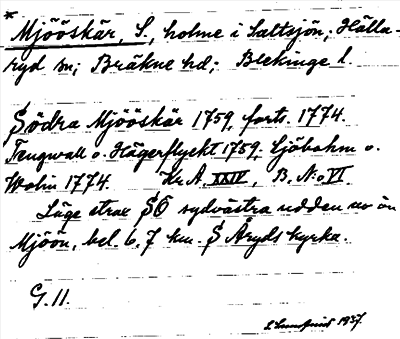 * Mjööskär, S., holme i Saltsjön; Hälla-
ryd sn; Bräkne hd; Blekinge l.
Södra Mjööskär 1759, forts. 1774.
Tengwall o. Hägerflyckt 1759, Sjöbohm o.
Wolin 1774. Kr. A. XXIV, B, N:o VI.
Läge strax SO sydvästra udden av ön
Mjöön, bel. 6,7 km S Åryds kyrka.
G. 11.
1937.